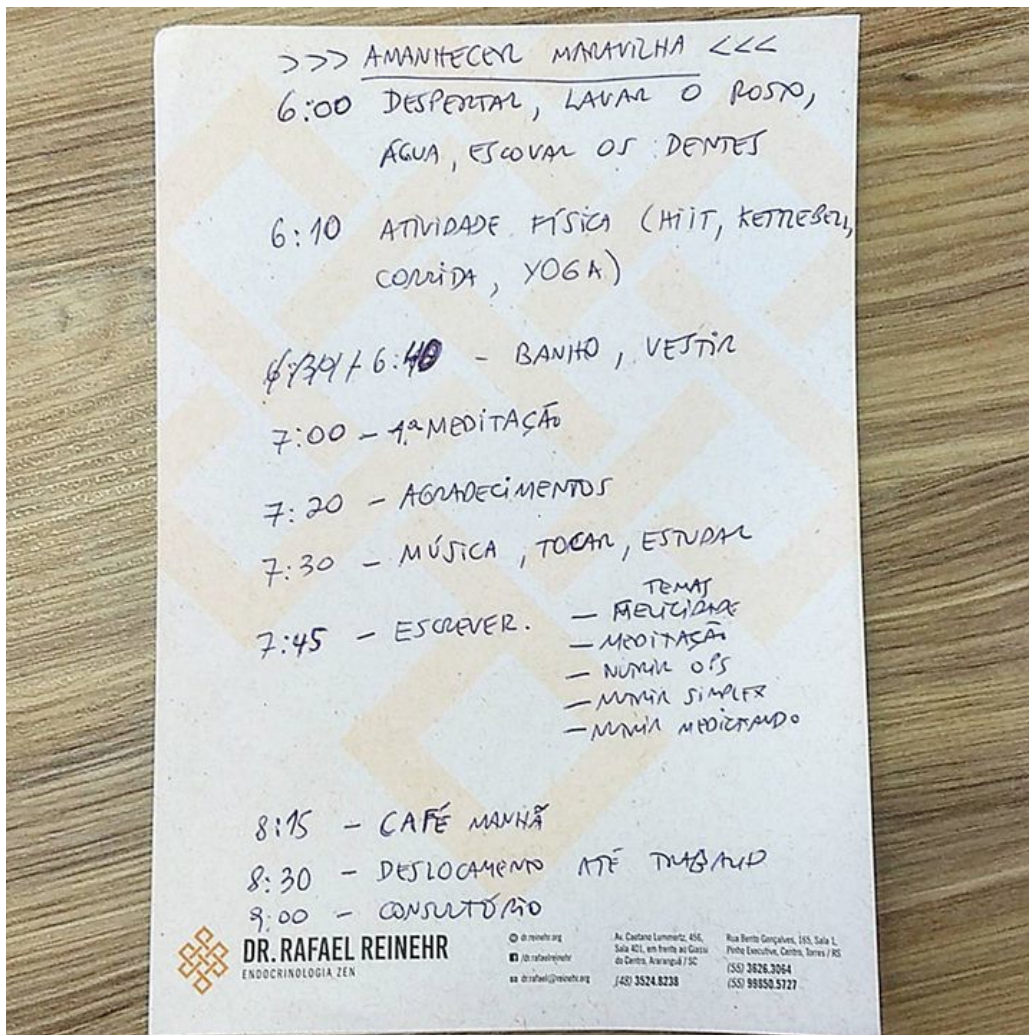 >>> AMANHECER MARAVILHA <<<
6:00 DESPERTAR, LAVAR O ROSTO,
ÁGUA, ESCOVAR OS DENTES
6:10 ATIVIDADE FÍSICA (HIIT, KETTLEBELL,
CORRIDA, YOGA)
6:30 / 6:40 - BANHO, VESTIR
7:00 - 1ª MEDITAÇÃO
7:20 - AGRADECIMENTOS
7:30 - MÚSICA, TOCAR, ESTUDAR
7:45 - ESCREVER.
TEMAS
- FELICIDADE
- MEDITAÇÃO
- NUTRIR OPS
- NUTRIR SIMPLEX
- NUTRIR MEDICANDO
8:15 - CAFÉ MANHÃ
8:30 - DESLOCAMENTO ATÉ TRABALHO
9:00 - CONSULTÓRIO
DR. RAFAEL REINEHR
ENDOCRINOLOGIA ZEN
dr.reinehr.org
/dr.rafaelreinehr
dr.rafael@reinehr.org
Av. Caetano Lummertz, 456,
Sala 401, em frente ao Giassi
do Centro, Araranguá / SC
(48) 3524.8238
Rua Bento Gonçalves, 165, Sala 1,
Executivo, Centro, Torres / RS
(55) 3626.3064
(55) 99850.5727